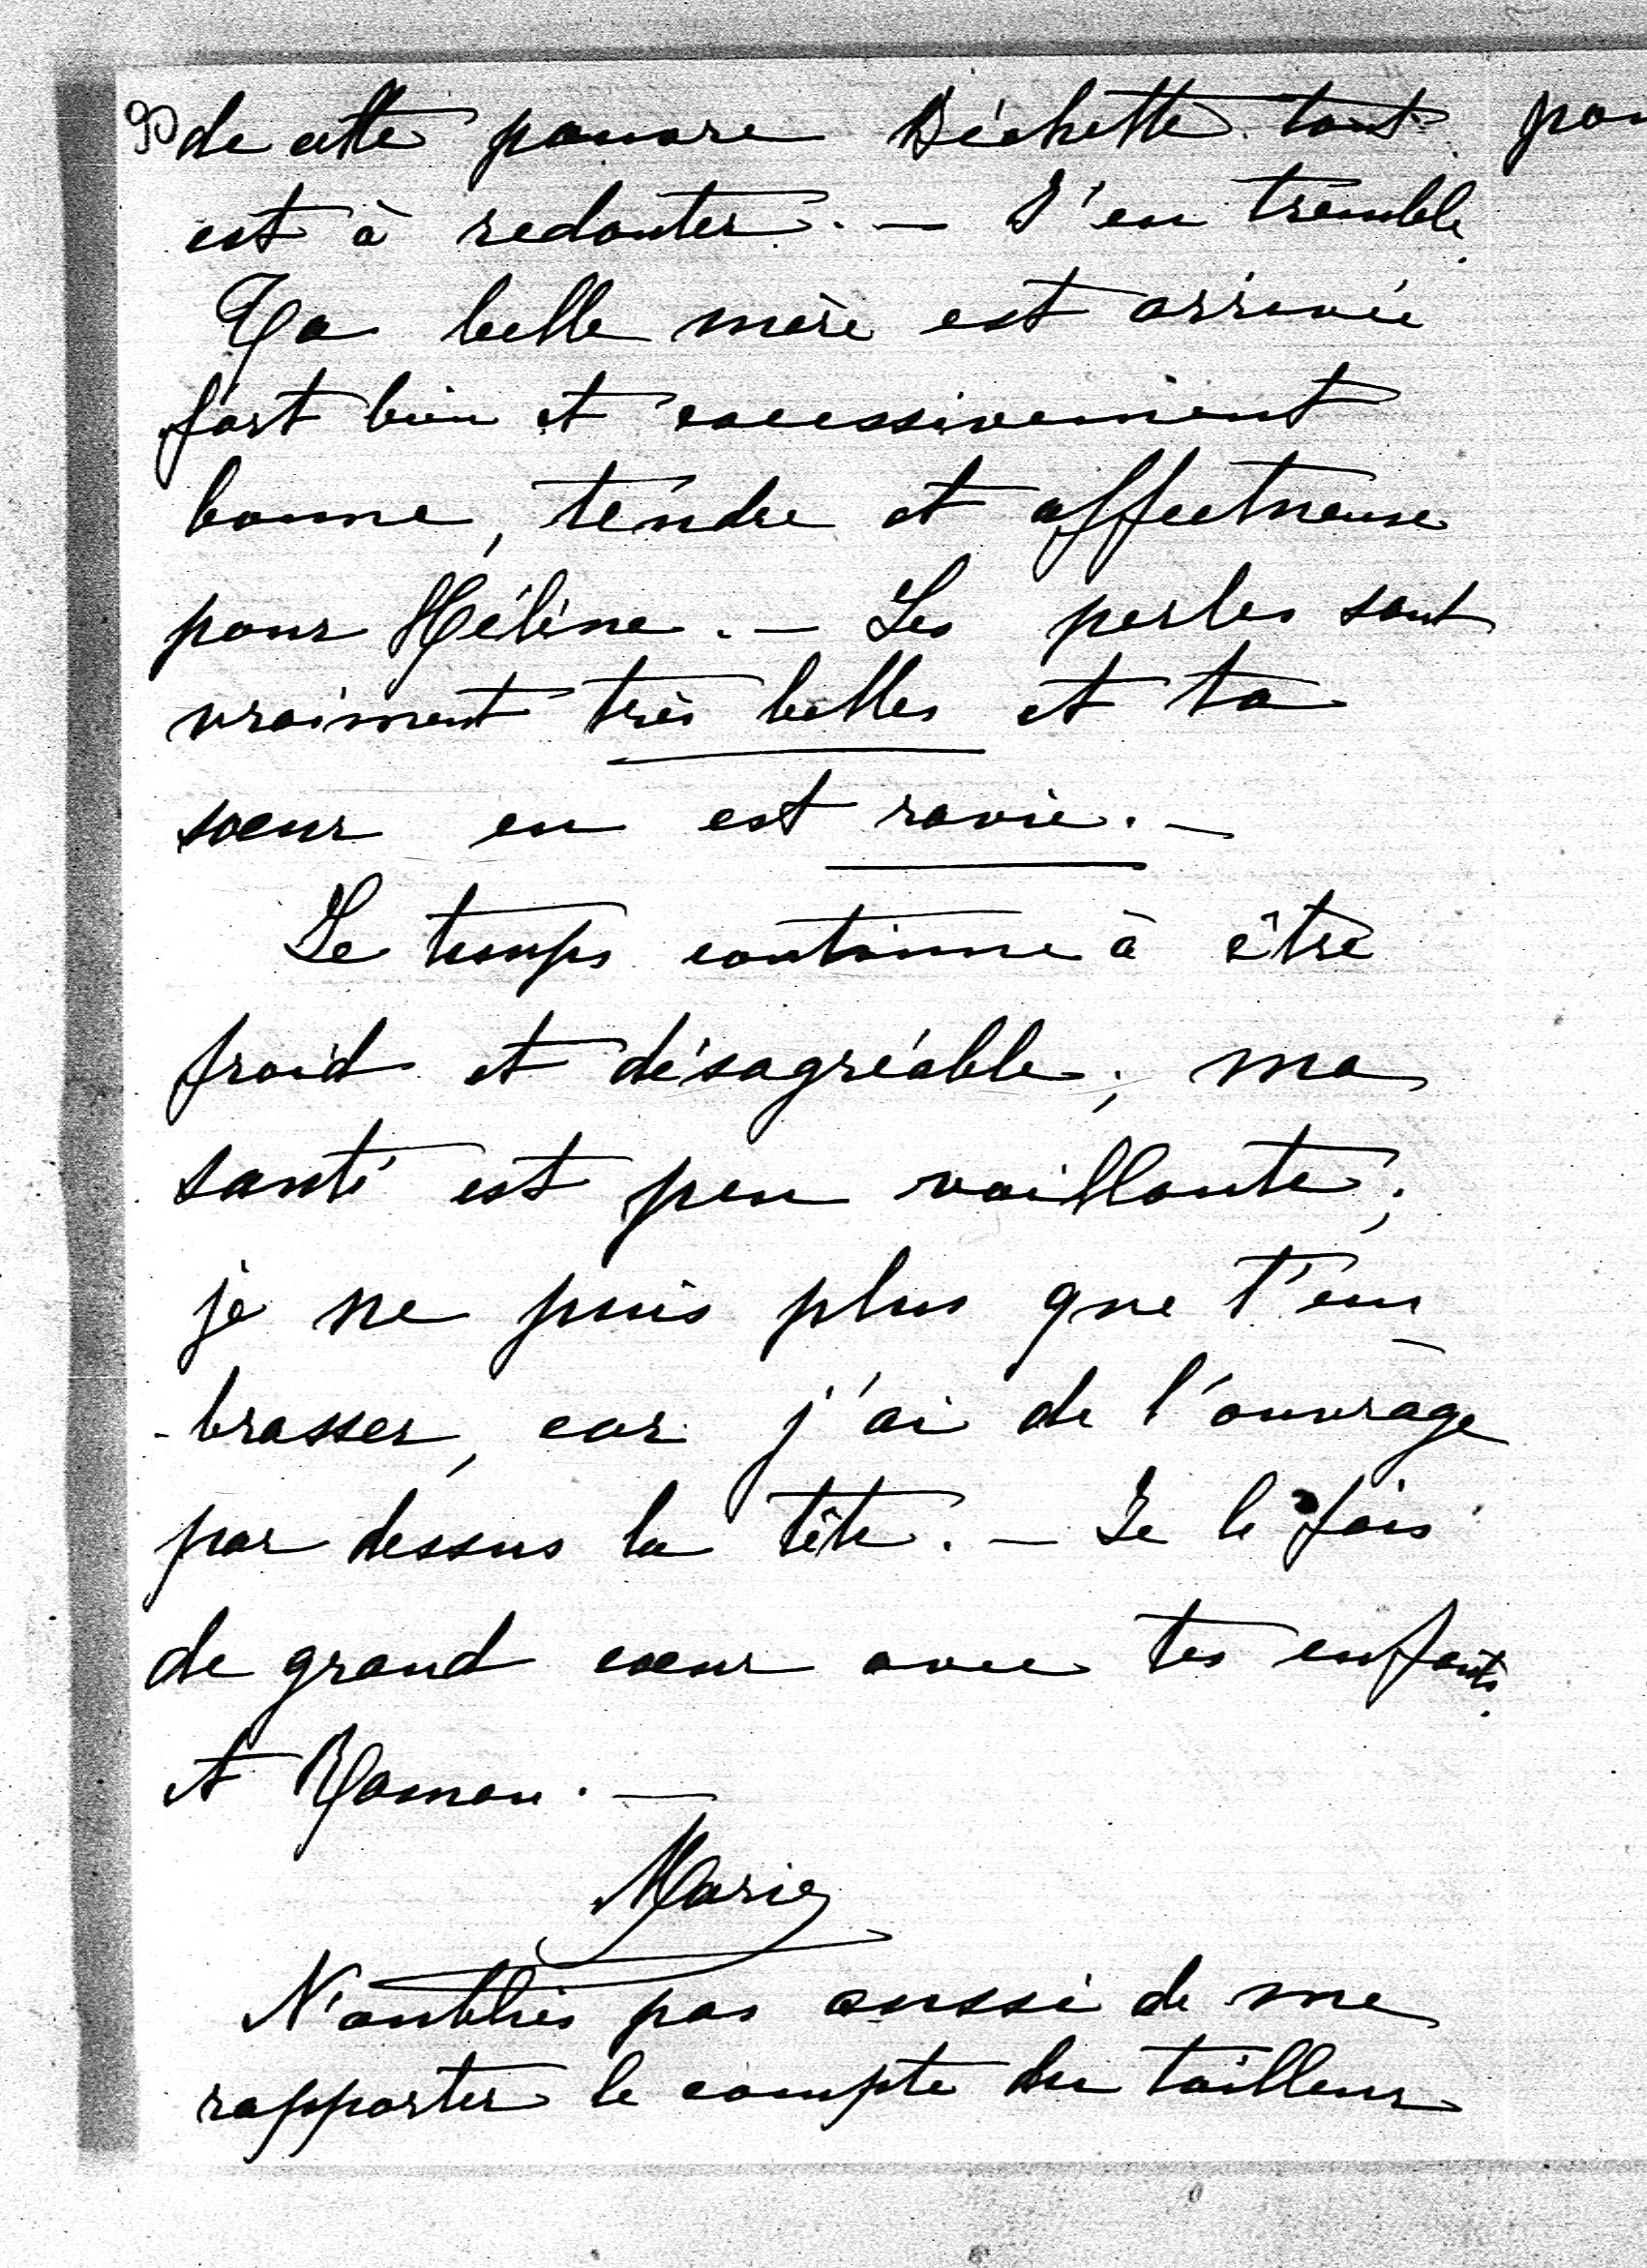 de cette pauvre Béchette tout
est à redouter. — J'en tremble.
Ta belle mère est arrivée
fort bien et excessivement
bonne, tendre et affectueuse
pour Hélène. — Les perles sont
vraiment très belles et ta
sœur en est ravie. —
Le temps continue à être
froid et désagréable ; ma
santé est peu vaillante ;
je ne puis plus que t'em
-brasser, car j'ai de l'ouvrage
par dessus la tête. — Je le fais
de grand cœur avec tes enfants.
et Maman. —
Marie
N'oublies pas aussi de me
rapporter le compte du tailleur